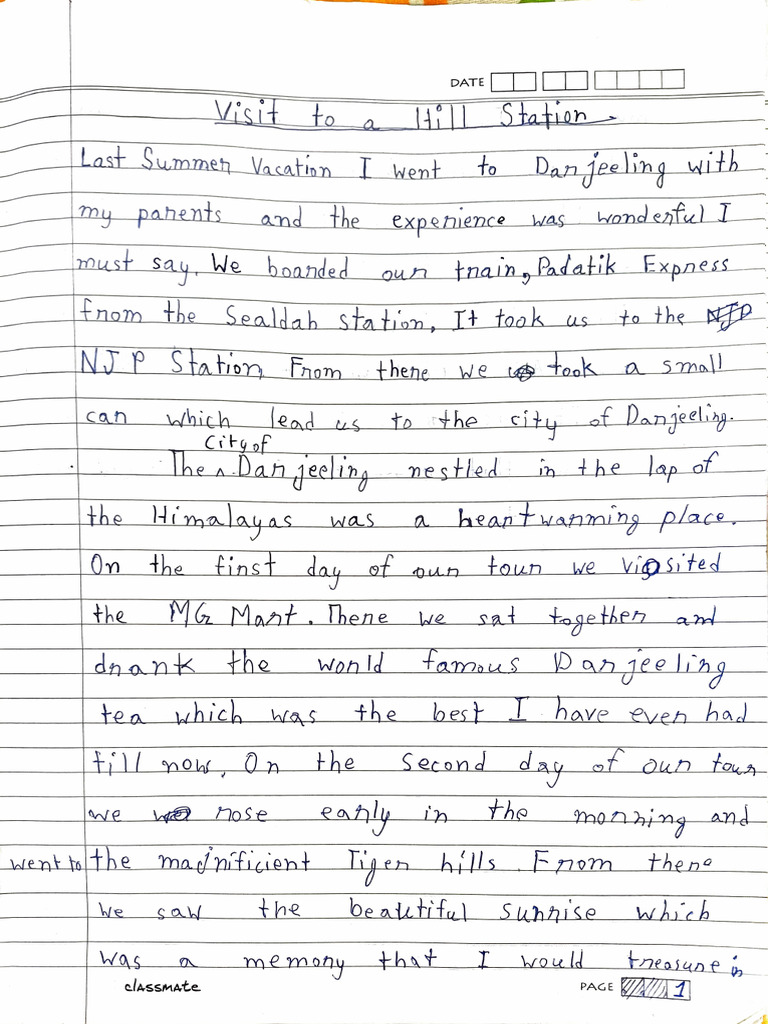 DATE
Visit to a Hill Station.
Last Summer Vacation I went to Darjeeling with
my parents and the experience was wonderful I
must say. We boarded our train, Padatik Express
from the Sealdah station. It took us to the
NJP Station. From there we took a small
car which lead us to the city of Darjeeling.
City of
The ^ Darjeeling nestled in the lap of
the Himalayas was a heartwarming place.
On the first day of our tour we visited
the MG Mart. There we sat together and
drank the world famous Darjeeling
tea which was the best I have ever had
till now. On the second day of our tour
we rose early in the morning and
went to the magnificient Tiger hills. From there
we saw the beautiful sunrise which
was a memory that I would treasure in
classmate
PAGE 1